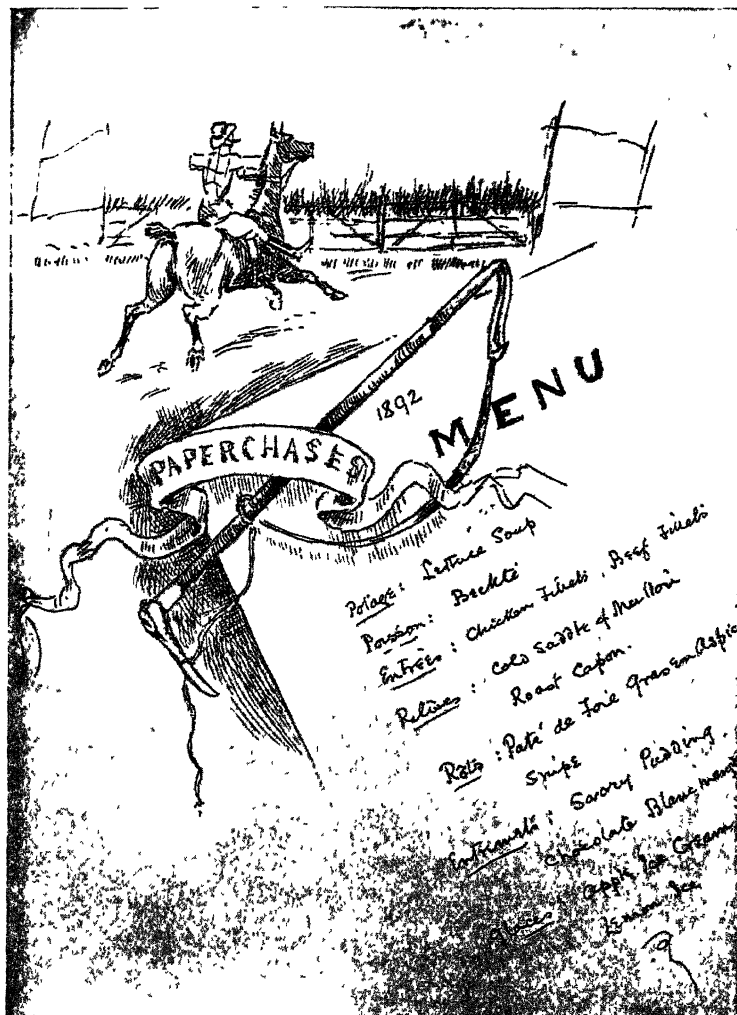 1892
MENU
PAPERCHASES
Potage: Lettuce Soup
Poisson: Beckté
Entrées: Chicken Fillets, Beef Fillets
Relèves: Cold Saddle of Mutton
Roast Capon.
Rôts: Paté de Foie Gras en Aspic
Snipe
Entremets: Savory Pudding.
Chocolate Blanc mange
Glaces: Apple Ice Cream
Lemon Ice